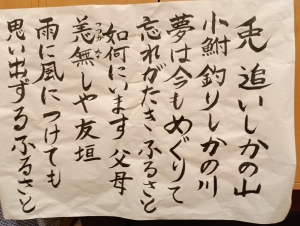 兎 追いしかの山
小鮒 釣りしかの川
夢は今もめぐりて
忘れがたきふるさと
如何にいます 父母
恙無しや友垣
雨に風につけても
思い出ずるふるさと